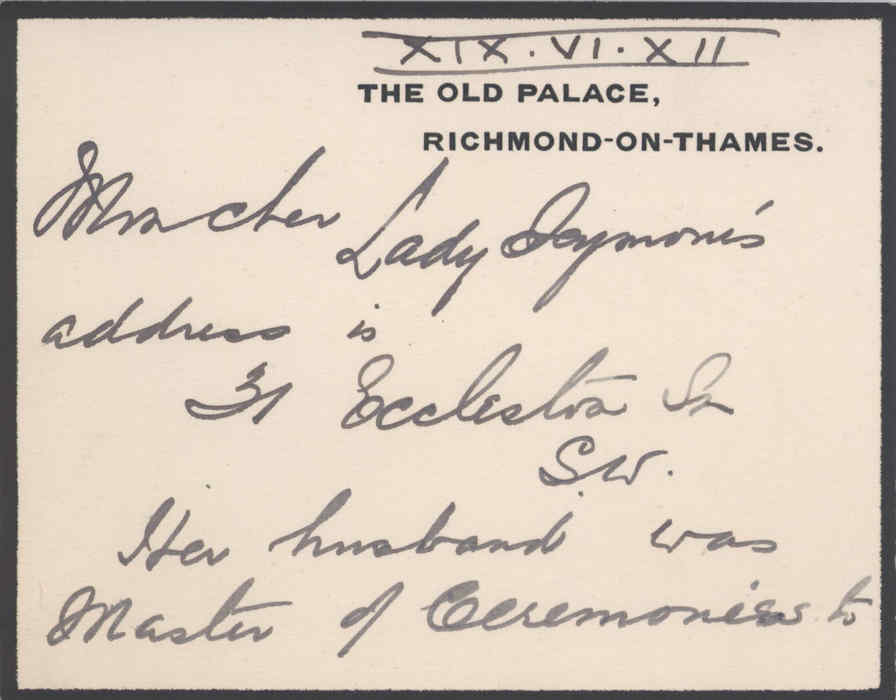 XIX.VI.XII
THE OLD PALACE,
RICHMOND-ON-THAMES.
Mon cher Lady Seymour's
address is
31 Eccleston Sq
S.W.
Her husband was
Master of Ceremonies to